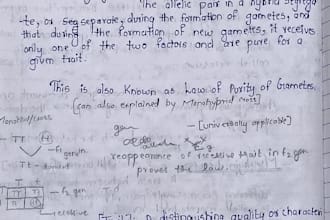 The allelic pair in a hybrid segrega
-te, or seg separate, during the formation of gametes, and
that during the formation of new gametes, it receives
only one of the two factors and are pure for a
given trait.
This is also Known as Law of Purity of Gametes.
(can also explained by Monohybrid cross)
Monohybrid cross
gen
- [universally applicable]
reappearance of recessive trait in f₂ gen
proves the law.
Tt
F₁ gen
Tt - dominant
TT Tt
- f₂ gen
recessive
distinguishing quality or character